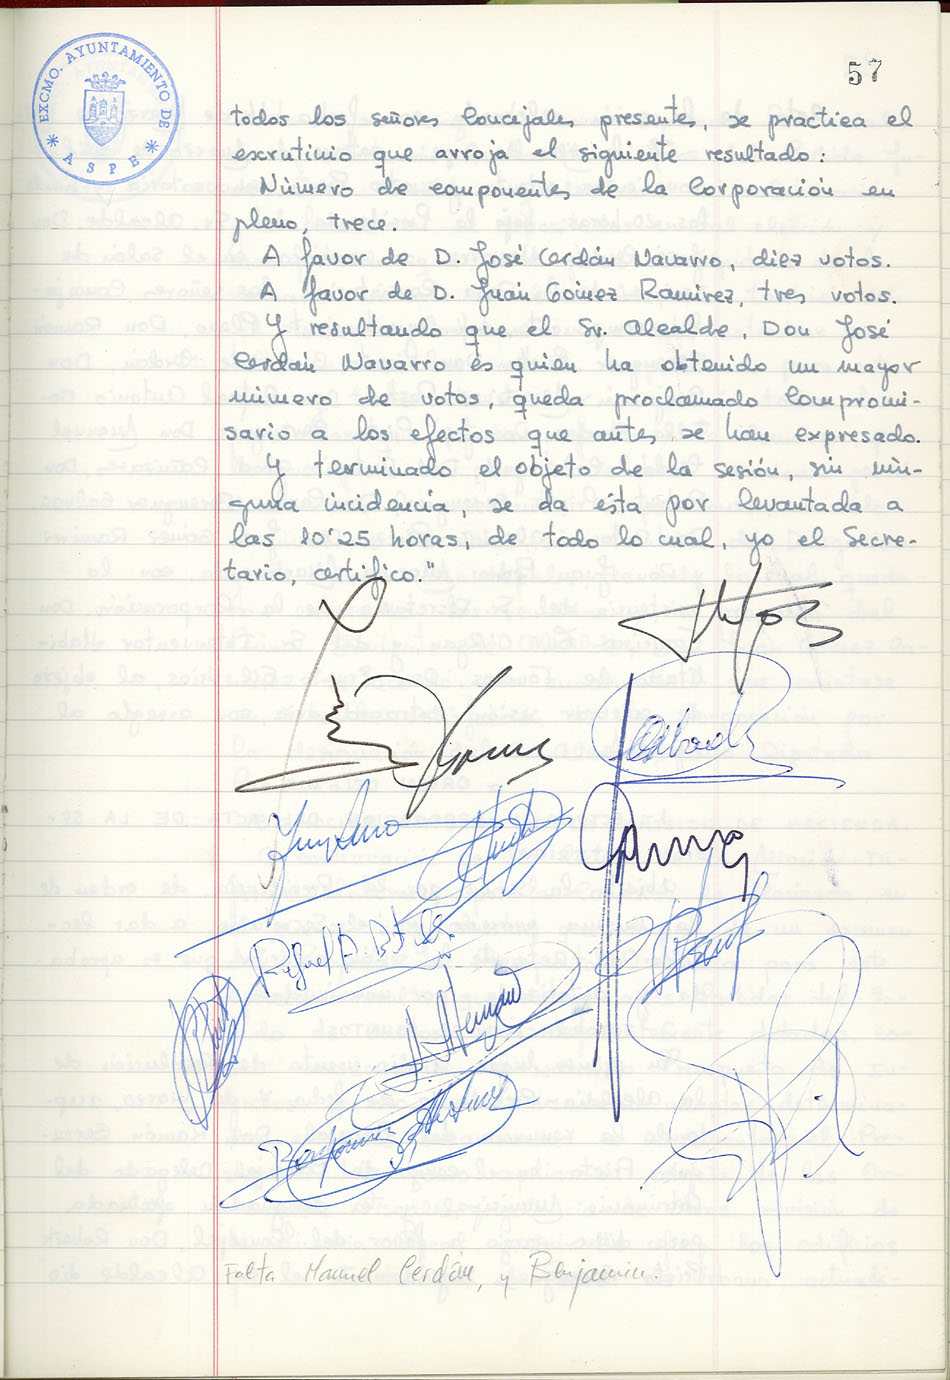 57
EXCMO. AYUNTAMIENTO DE
* ASPE *
todos los señores Concejales presentes, se practica el
escrutinio que arroja el siguiente resultado:
Número de componentes de la Corporación en
pleno, trece.
A favor de D. José Cerdán Navarro, diez votos.
A favor de D. Juan Gómez Ramírez, tres votos.
Y resultando que el Sr. Alcalde, Don José
Cerdán Navarro es quien ha obtenido un mayor
número de votos, queda proclamado Compromi-
sario a los efectos que antes se han expresado.
Y terminado el objeto de la sesión, sin nin-
guna incidencia, se da ésta por levantada a
las 10'25 horas, de todo lo cual, yo el Secre-
tario, certifico."
Rafael A. B
Falta Manuel Cerdán, y Benjamin.